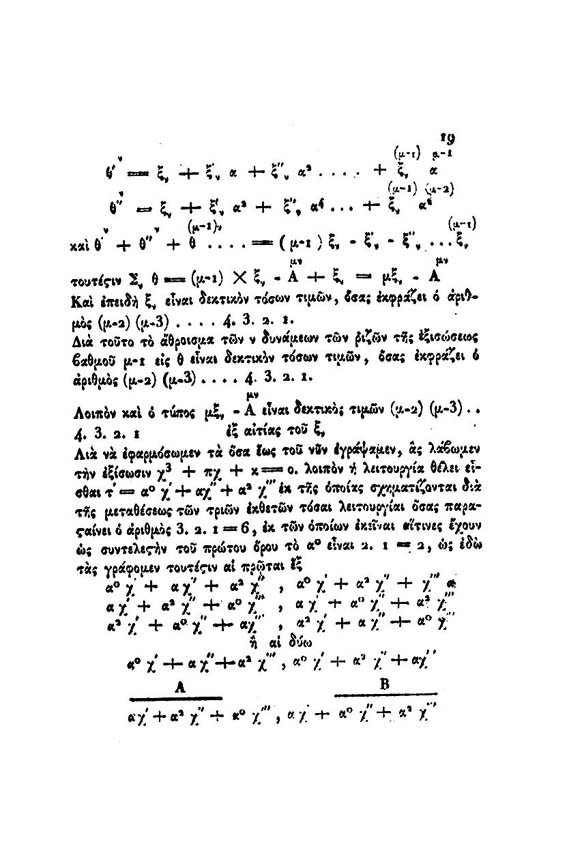 19
θ′ᵛ = ξᵥ + ξ′ᵥ α + ξ″ᵥ α² . . . . + ξᵥ^(μ-1) α^μ-1
θ″ᵛ = ξᵥ + ξ′ᵥ α² + ξ″ᵥ α⁴ . . . + ξᵥ^(μ-1) α²^(μ-2)
καὶ θ′ᵛ + θ″ᵛ + θ^(μ-1)ᵛ . . . . = (μ-1) ξᵥ - ξ′ᵥ - ξ″ᵥ . . . ξᵥ^(μ-1)
τουτέϛιν Σᵥ θ = (μ-1) × ξᵥ - A^μν + ξᵥ = μξᵥ - A^μν
Καὶ ἐπειδὴ ξᵥ εἶναι δεκτικὸν τόσων τιμῶν, ὅσας ἐκφράζει ὁ ἀριθ-
μὸς (μ-2) (μ-3) . . . . 4. 3. 2. 1.
Διὰ τοῦτο τὸ ἄθροισμα τῶν ν δυνάμεων τῶν ῥιζῶν τῆς ἐξισώσεως
βαθμοῦ μ-1 εἰς θ εἶναι δεκτικὸν τόσων τιμῶν, ὅσας ἐκφράζει ὁ
ἀριθμὸς (μ-2) (μ-3) . . . . 4. 3. 2. 1.
Λοιπὸν καὶ ὁ τύπος μξᵥ - A^μν εἶναι δεκτικὸς τιμῶν (μ-2) (μ-3) . .
4. 3. 2. 1 ἐξ αἰτίας τοῦ ξᵥ
Διὰ νὰ ἐφαρμόσωμεν τὰ ὅσα ἕως τοῦ νῦν ἐγράψαμεν, ἂς λάβωμεν
τὴν ἐξίσωσιν χ³ + πχ + κ = 0. λοιπὸν ἡ λειτουργία θέλει εἶ-
σθαι τ′ = α⁰ χ′ + αχ″ + α² χ‴ ἐκ τῆς ὁποίας σχηματίζονται διὰ
τῆς μεταθέσεως τῶν τριῶν ἐκθετῶν τόσαι λειτουργίαι ὅσας παρα-
ϛαίνει ὁ ἀριθμὸς 3. 2. 1 = 6, ἐκ τῶν ὁποίων ἐκεῖναι αἵτινες ἔχουν
ὡς συντελεϛὴν τοῦ πρώτου ὅρου τὸ α⁰ εἶναι 2. 1 = 2, ὡς ἐδὼ
τὰς γράφομεν τουτέϛιν αἱ πρῶται ἓξ
α⁰ χ′ + α χ″ + α² χ‴ , α⁰ χ′ + α² χ″ + χ‴ α
α χ′ + α² χ″ + α⁰ χ‴ , α χ′ + α⁰ χ″ + α² χ‴
α² χ′ + α⁰ χ″ + αχ‴ , α² χ′ + α χ″ + α⁰ χ‴
ἢ αἱ δύω
α⁰ χ′ + α χ″ + α² χ‴ , α⁰ χ′ + α² χ″ + αχ‴
A B
αχ′ + α² χ″ + α⁰ χ‴ , α χ′ + α⁰ χ″ + α² χ‴